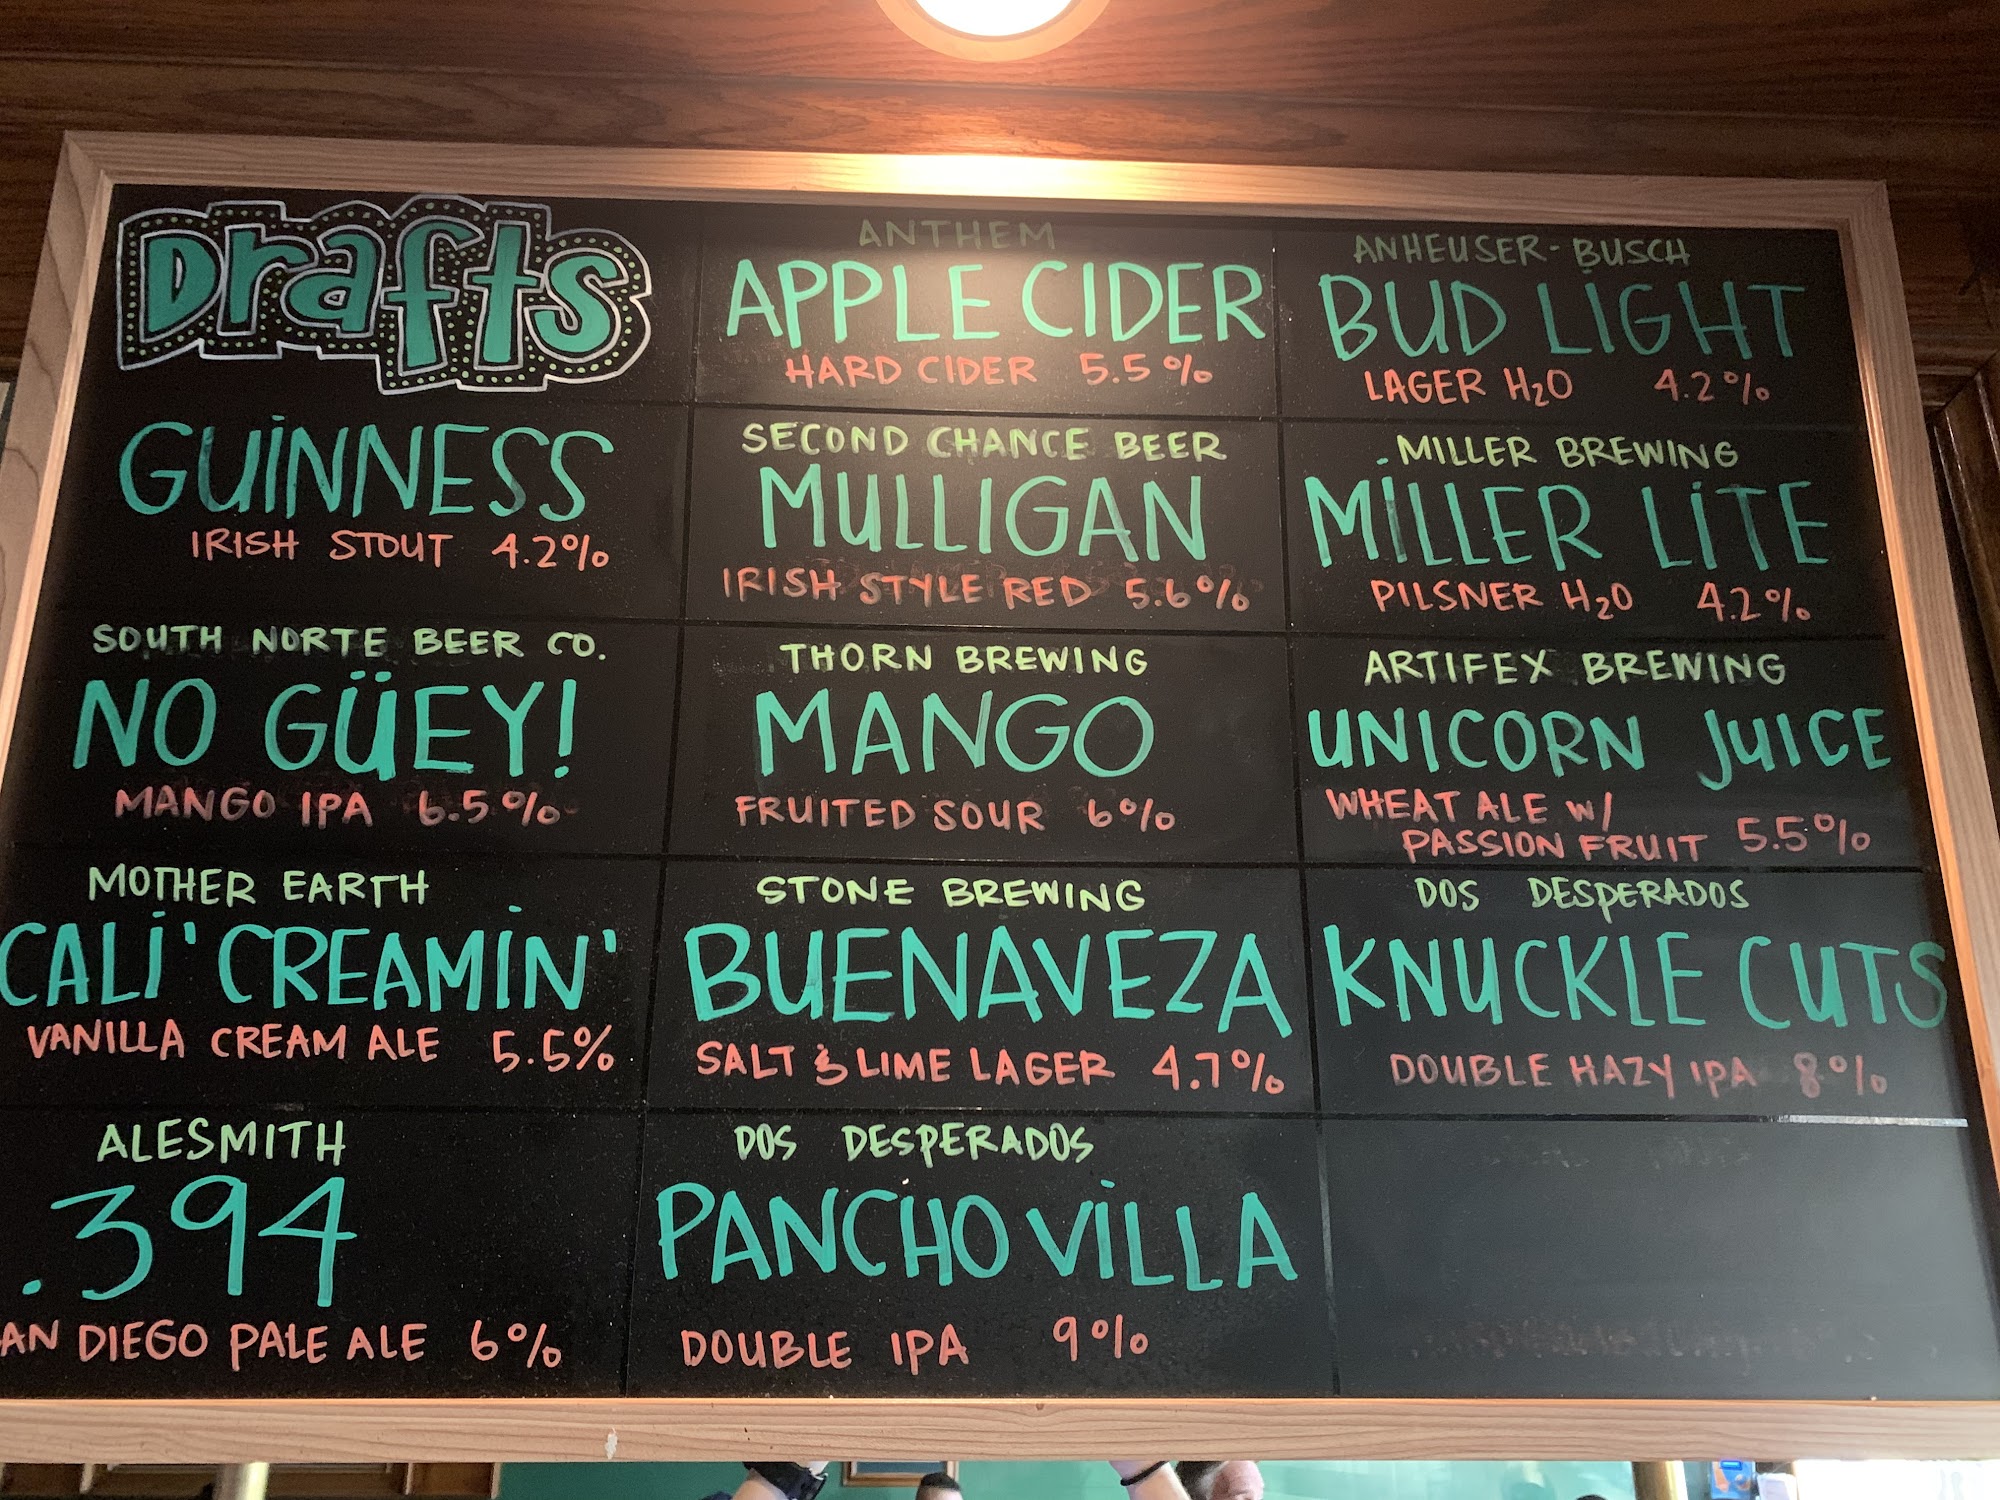 Drafts
GUINNESS
IRISH STOUT 4.2%
SOUTH NORTE BEER CO.
NO GÜEY!
MANGO IPA 6.5%
MOTHER EARTH
CALI 'CREAMIN'
VANILLA CREAM ALE 5.5%
ALESMITH
.394
AN DIEGO PALE ALE 6%
ANTHEM
APPLE CIDER
HARD CIDER 5.5%
SECOND CHANCE BEER
MULLIGAN
IRISH STYLE RED 5.6%
THORN BREWING
MANGO
FRUITED SOUR 6%
STONE BREWING
BUENAVEZA
SALT & LIME LAGER 4.7%
DOS DESPERADOS
PANCHO VILLA
DOUBLE IPA 9%
ANHEUSER-BUSCH
BUD LIGHT
LAGER H₂O 4.2%
MILLER BREWING
MILLER LITE
PILSNER H₂O 4.2%
ARTIFEX BREWING
UNICORN JUICE
WHEAT ALE W/
PASSION FRUIT 5.5%
DOS DESPERADOS
KNUCKLE CUTS
DOUBLE HAZY IPA 8%